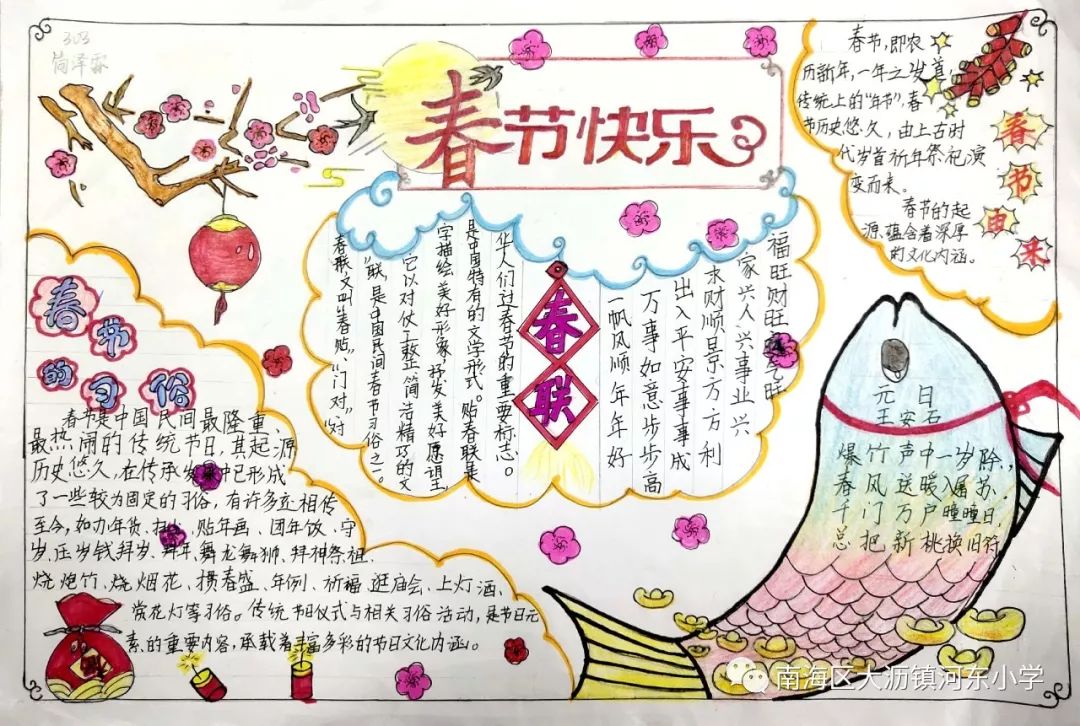 303
春节快乐
春节,即农
历新年,一年之岁首,
传统上的“年节”,春
节历史悠久,由上古时
代岁首祈年祭祀演
变而来。
春节的起
源蕴含着深厚
的文化内涵。
春节由来
春联又叫“春贴”、“门对”、“对
联”是中国民间春节习俗之一。
它以对仗工整、简洁精巧的文
字描绘美好形象,抒发美好愿望,
是中国特有的文学形式。贴春联是
华人们过春节的重要标志。
春联
福旺财旺运气旺
家兴人兴事业兴
求财顺景方方利
出入平安事事成
万事如意步步高
一帆风顺年年好
春节的习俗
春节是中国民间最隆重、
最热闹的传统节日,其起源
历史悠久,在传承发展中已形成
了一些较为固定的习俗,有许多还相传
至今,如办年货、扫尘、贴年画、团年饭、守
岁、压岁钱、拜岁、拜年、舞龙舞狮、拜神祭祖、
烧炮竹、烧烟花、掼春盛、年例、祈福、逛庙会、上灯酒、
赏花灯等习俗。传统节日仪式与相关习俗活动,是节日元
素的重要内容,承载着丰富多彩的节日文化内涵。
元日
王安石
爆竹声中一岁除,
春风送暖入屠苏。
千门万户曈曈日,
总把新桃换旧符
南海区大沥镇河东小学